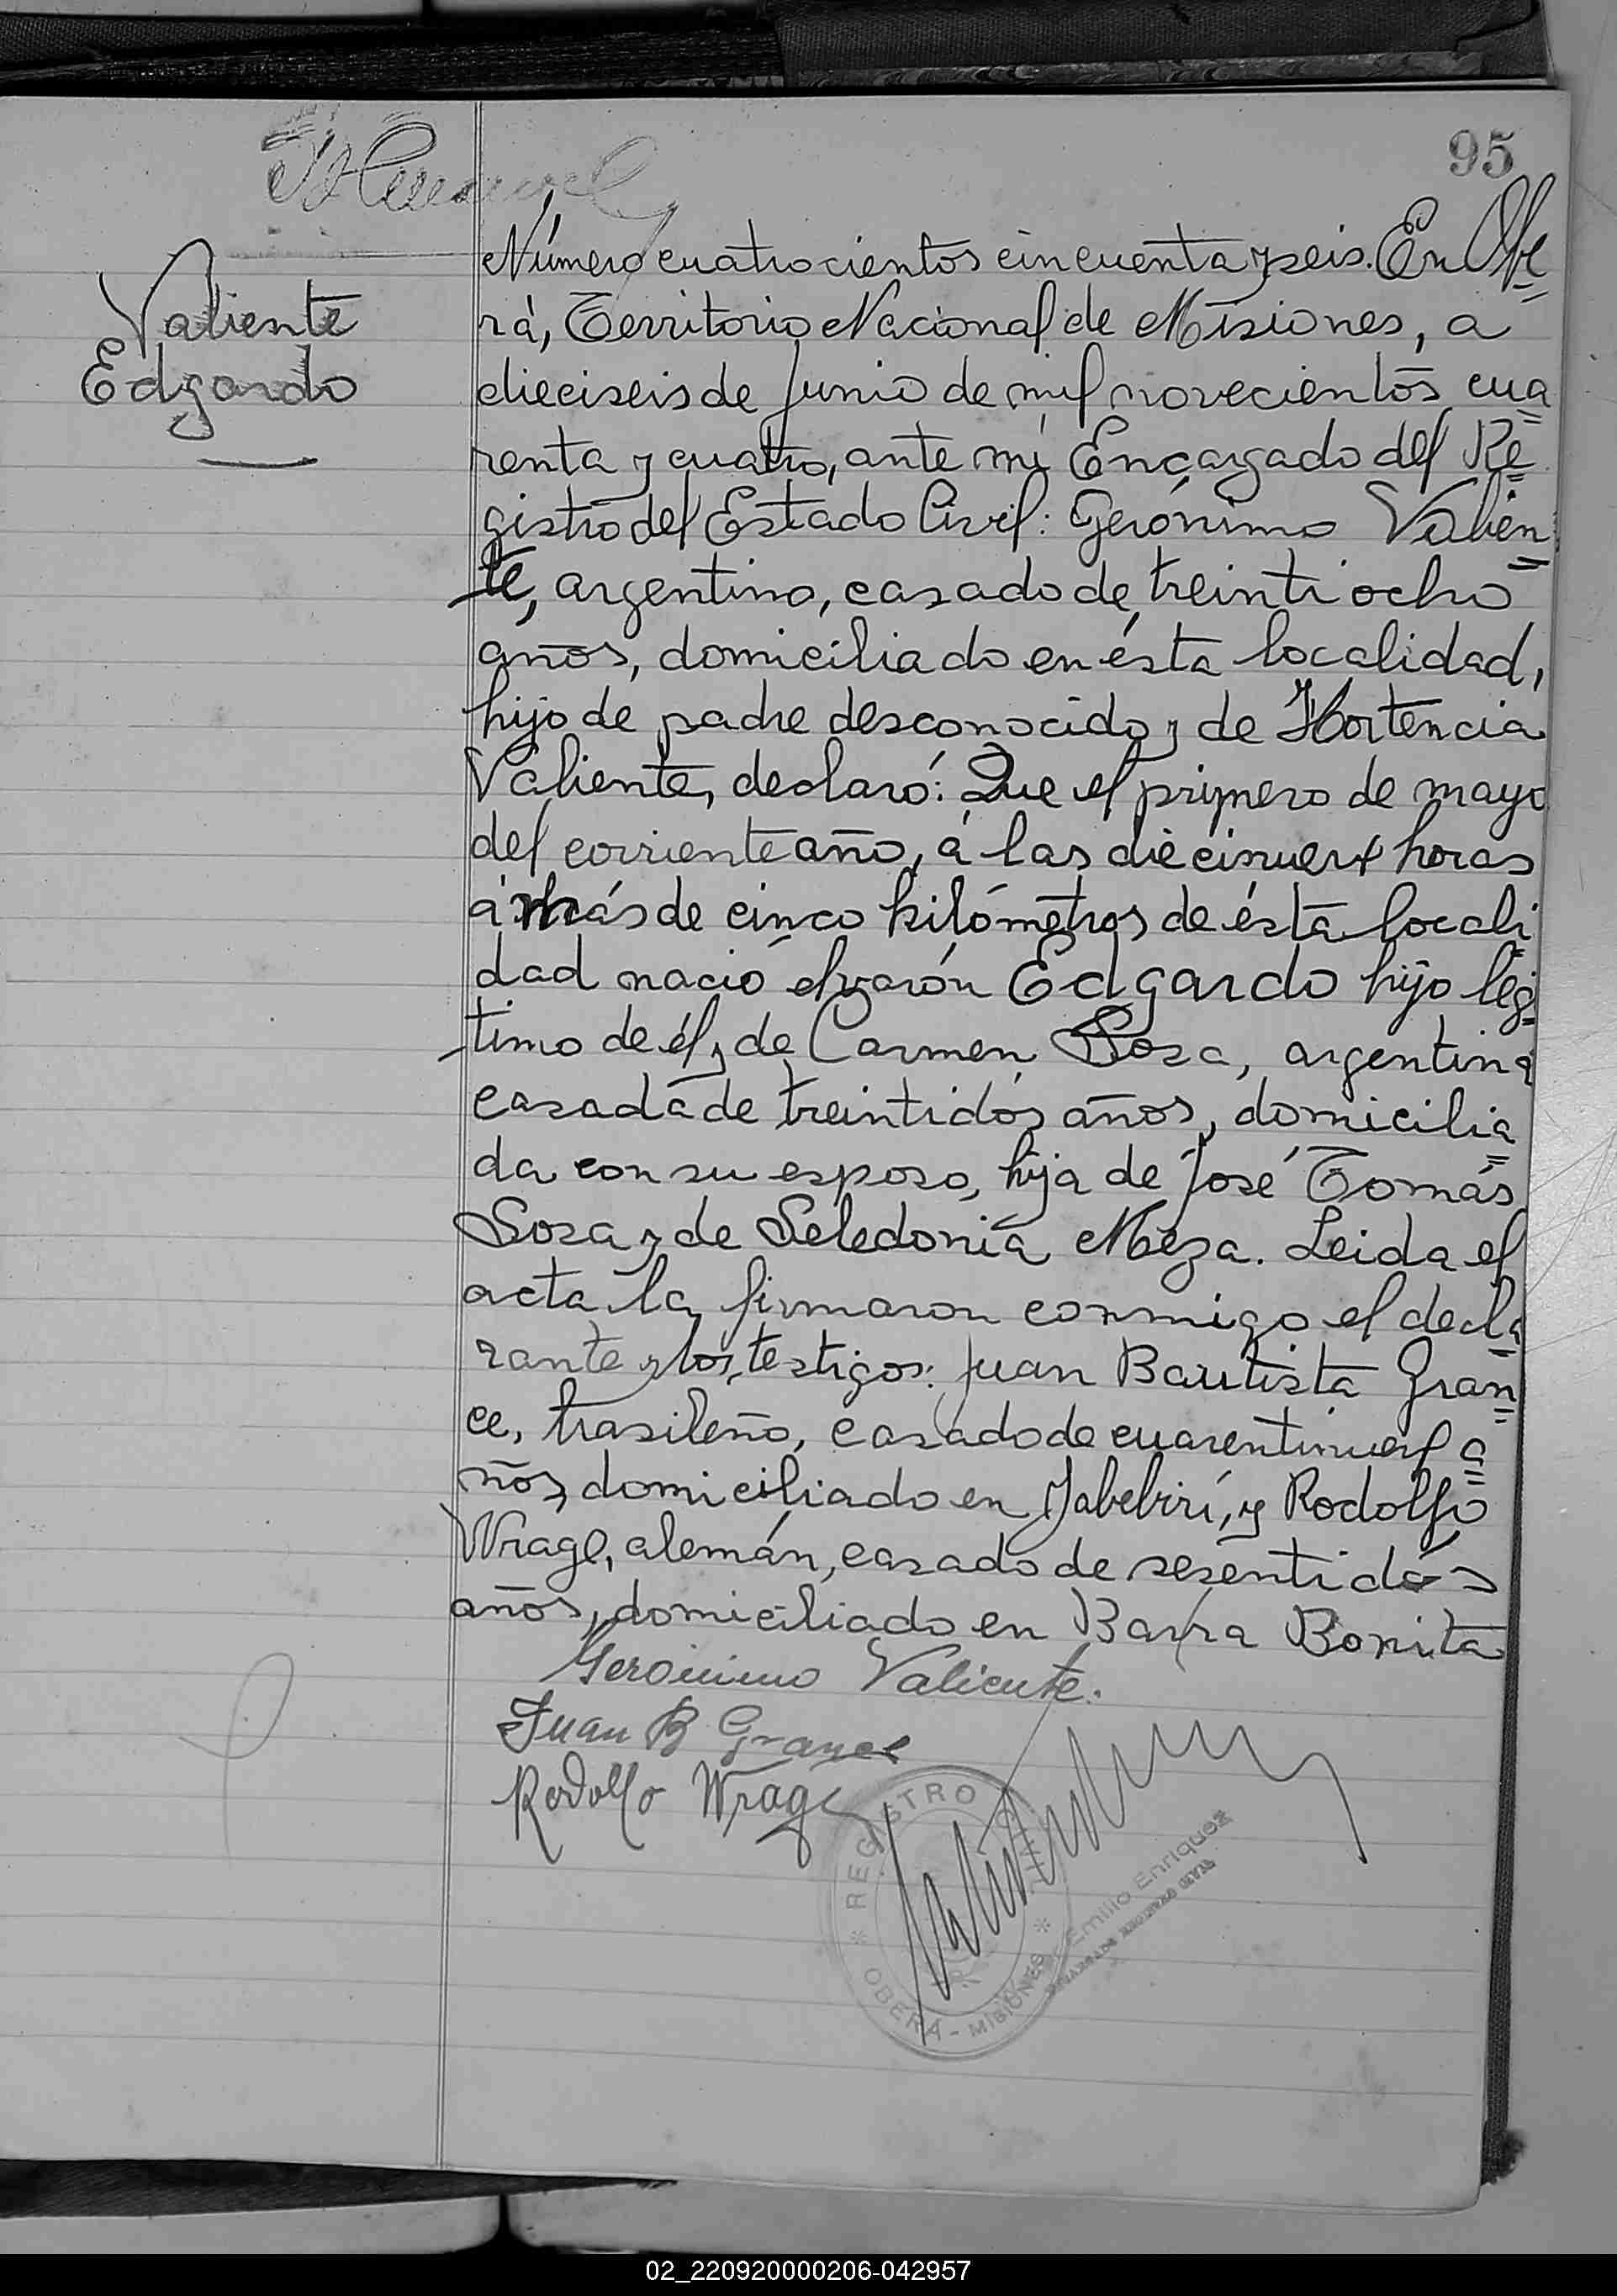 95
Valiente
Edgardo
Número cuatrocientos cincuenta y seis. En Obe=
rá, Territorio Nacional de Misiones, a
dieciseis de Junio de mil novecientos cua=
renta y cuatro, ante mí Encargado del Re=
gistro del Estado Civil: Gerónimo Valien=
te, argentino, casado de treintiocho
años, domiciliado en ésta localidad,
hijo de padre desconocido y de Hortencia
Valiente, declaró: Que el primero de mayo
del corriente año, á las diecinueve horas
á más de cinco kilómetros de ésta locali
dad nació el varón Edgardo hijo legí=
timo de él y de Carmen Sosa, argentina
casada de treintidós años, domicilia=
da con su esposo, hija de José Tomás
Sosa y de Seledonia Meza. Leida el
acta la firmaron conmigo el decla=
rante y los testigos: Juan Bautista Gran=
ce, brasileño, casado de cuarentinueve a=
ños, domiciliado en Yabebirí, y Rodolfo
Wrage, alemán, casado de sesentidós
años, domiciliado en Barra Bonita
Geronimo Valiente.
Juan B Grance
Rodolfo Wrage
REGISTRO CIVIL
OBERÁ - MISIONES
Emilio Enriquez
02_220920000206-042957